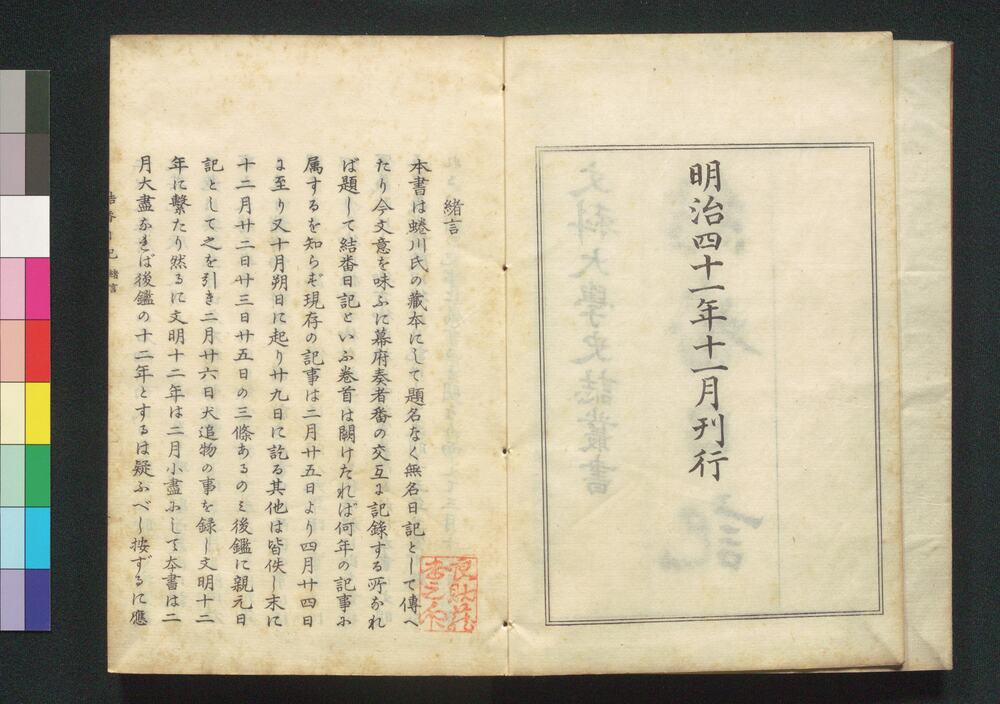 明治四十一年十一月刊行
緒言
本書は蜷川氏の藏本にして題名なく無名日記として傳へ
たり今文意を味ふに幕府奏者番の交互に記錄する所なれ
ば題して結番日記といふ巻首は闕けたれば何年の記事に
属するを知らず現存の記事は二月廿五日より四月廿四日
に至り又十月朔日に起り廿九日に訖る其他は皆佚し末に
十二月廿二日廿三日廿五日の三條あるのミ後鑑に親元日
記として之を引き二月廿六日犬追物の事を録し文明十二
年に繫たり然るに文明十二年は二月小盡にして本書は二
月大盡なれば後鑑の十二年とするは疑ふべし按ずるに應
緒言